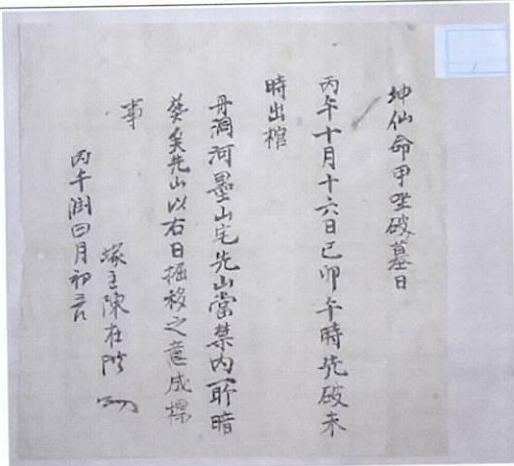 坤仙命甲坐破墓日
丙午十月十六日己卯午時先破未
時出棺
丹洞河墨山宅先山當禁內 暗
葬矣先山以右日掘移之意成標
事
塚主陳在
丙午閏四月初 日